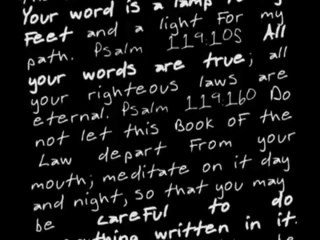 Your word is a lamp to my
Feet and a light For my
path. Psalm 119.105 All
your words are true; all
your righteous laws are
eternal. Psalm 119.160 Do
not let this Book OF the
Law depart From your
mouth; meditate on it day
and night, so that you may
be careFul to do
written in it.